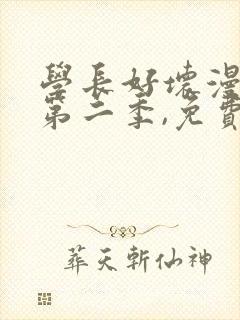 學長好壞漫
第二季,免費
葬天斬仙神